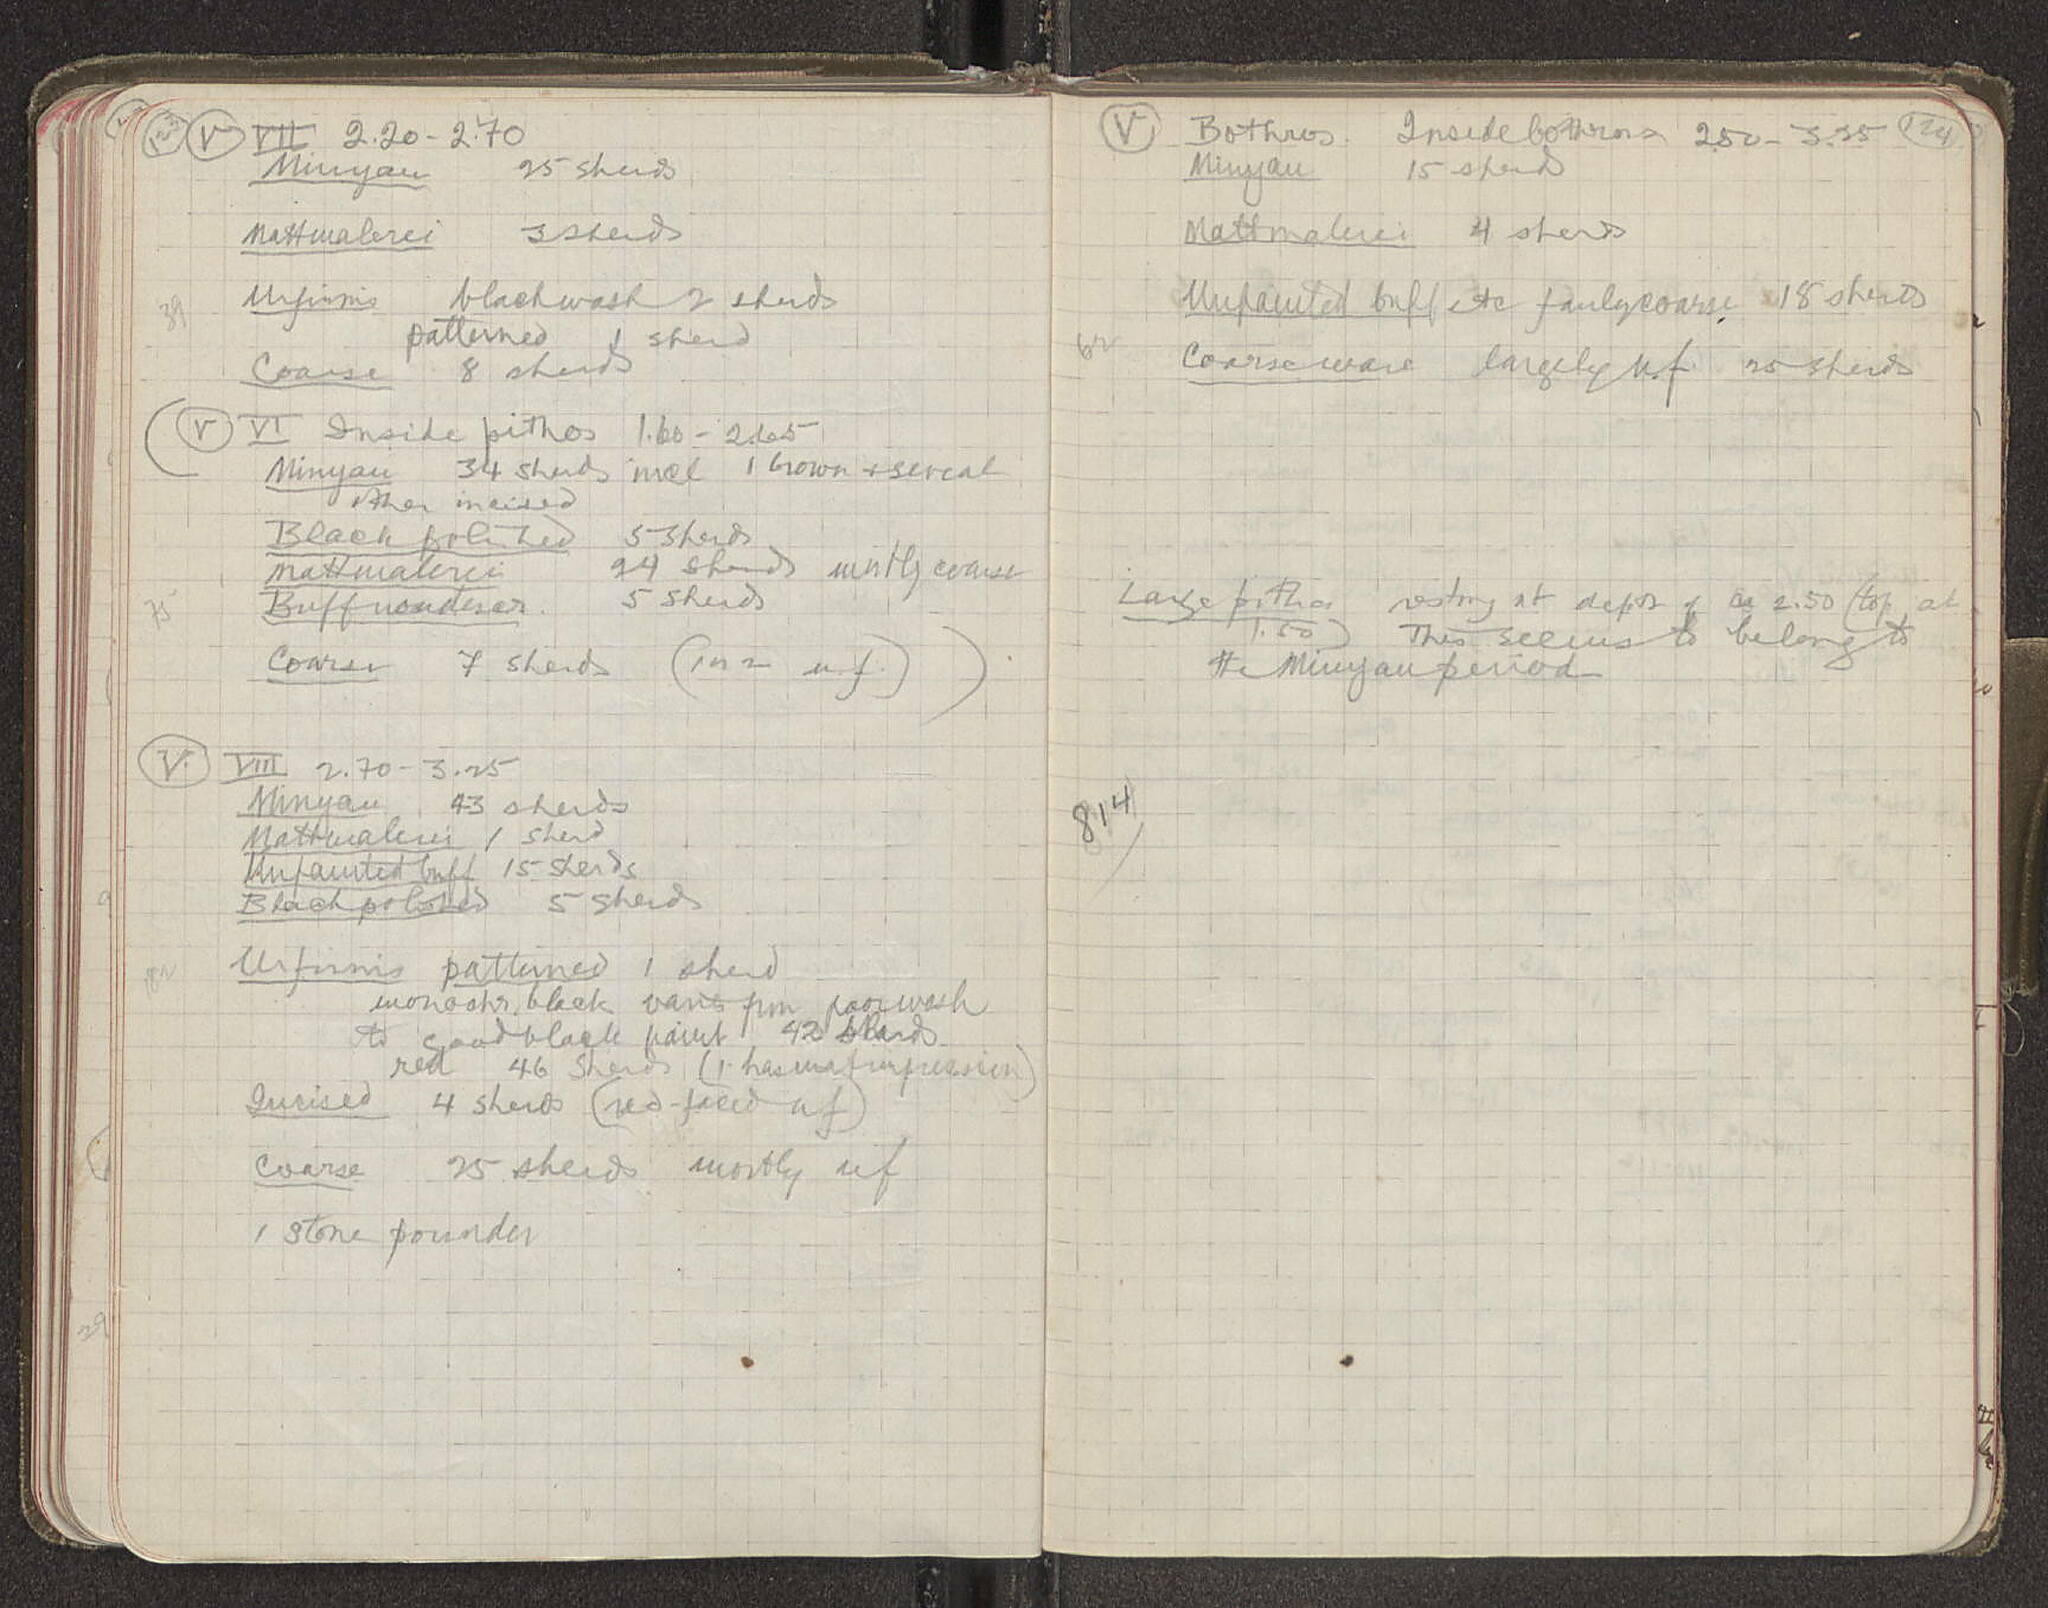 123 V VII 2.20-2.70
Minyan 25 sherds
Mattmalerei 3 sherds
39 Urfirnis black wash 2 sherds
patterned 1 sherd
Coarse 8 sherds
V VI Inside pithos 1.60-2.65
Minyan 34 sherds incl 1 brown + several
other incised
Black polished 5 sherds
Mattmalerei 24 sherds mostly coarse
75 Buff undecor. 5 sherds
Coarse 7 sherds (1 or 2 u.f.)
V. VIII 2.70-3.25
Minyan 43 sherds
Mattmalerei 1 sherd
Unpainted buff 15 sherds
Black polished 5 sherds
182 Urfirnis patterned 1 sherd
monochr. black varies from poor wash
to good black paint 42 sherds
red 46 sherds (1 has mat impression)
Incised 4 sherds (red-faced uf)
Coarse 25 sherds mostly uf
1 stone pounder
39
V Bothros. Inside bothros 2.50-3.25 124
Minyan 15 sherds
Mattmalerei 4 sherds
Unpainted buff etc fairly coarse 18 sherds
62 Coarse ware largely u.f. 25 sherds
Large pithos resting at depth of ca 2.50 (top at
1.50) This seems to belong to
the Minyan period
814